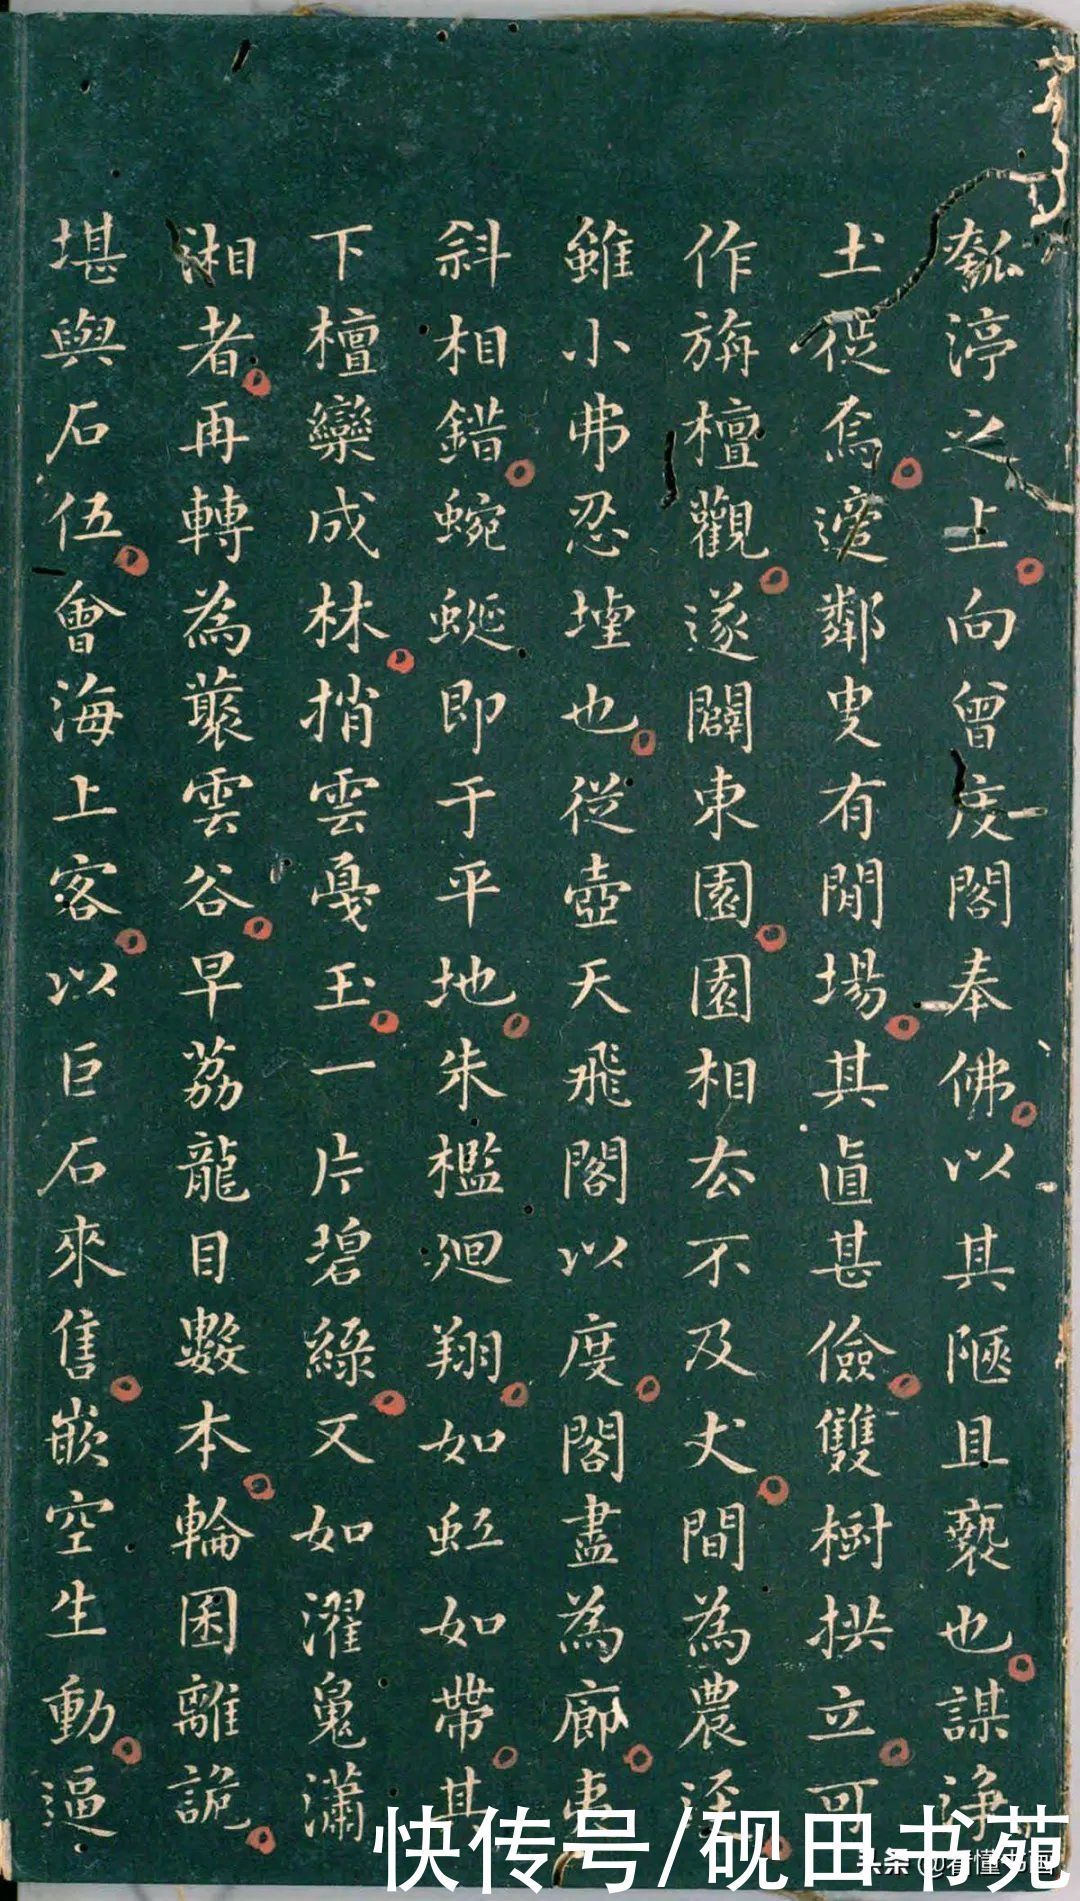 瓠渟之上向曾庋閣奉佛以其陋且褻也謀淨
土從焉適鄰叟有閒場其直甚儉雙樹拱立可
作旃檀觀遂闢東園園相去不及丈間為農
雖小弗忍堙也從壺天飛閣以度閣盡為廊東
斜相錯蜿蜒即于平地朱檻迴翔如虹如帶其
下檀欒成林捎雲戛玉一片碧綠又如濯鳧瀟
湘者再轉為叢雲谷早荔龍目數本輪囷離詭
堪與石伍會海上客以巨石來售嵌空生動逼
快传号/砚田书苑
头条 @看懂书画